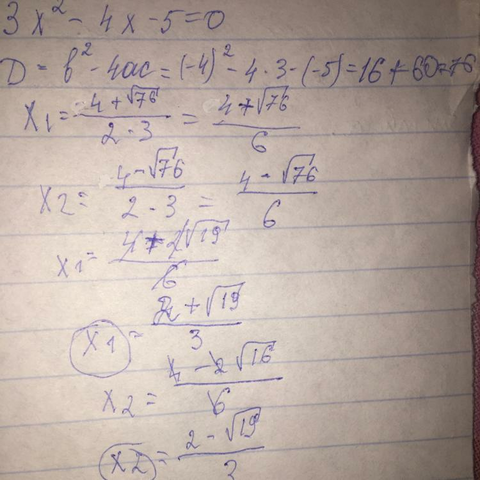 3x² - 4x - 5 = 0
D = b² - 4ac = (-4)² - 4·3·(-5) = 16 + 60 = 76
x1 = (4 + √76)/(2·3) = (4 + √76)/6
x2 = (4 - √76)/(2·3) = (4 - √76)/6
x1 = (4 + 2√19)/6
x1 = (2 + √19)/3
x2 = (4 - 2√16)/6
x2 = (2 - √19)/3